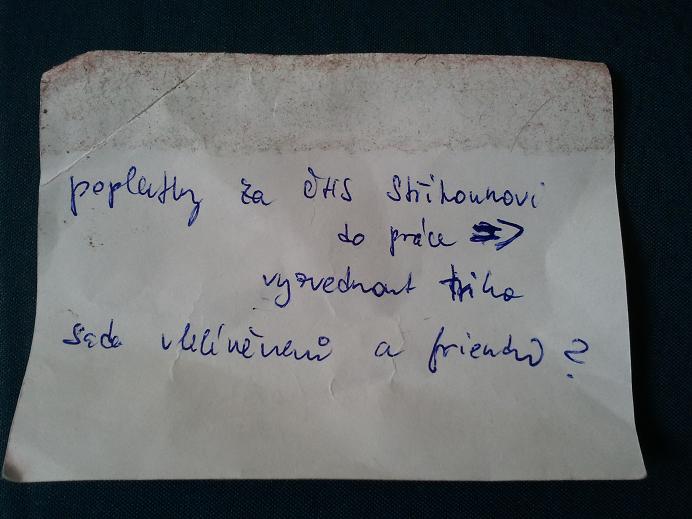 poplatky za ČHS Střihounovi
do práce ⇒
vyzvednout triko
sada vklíněnců a friendů ?